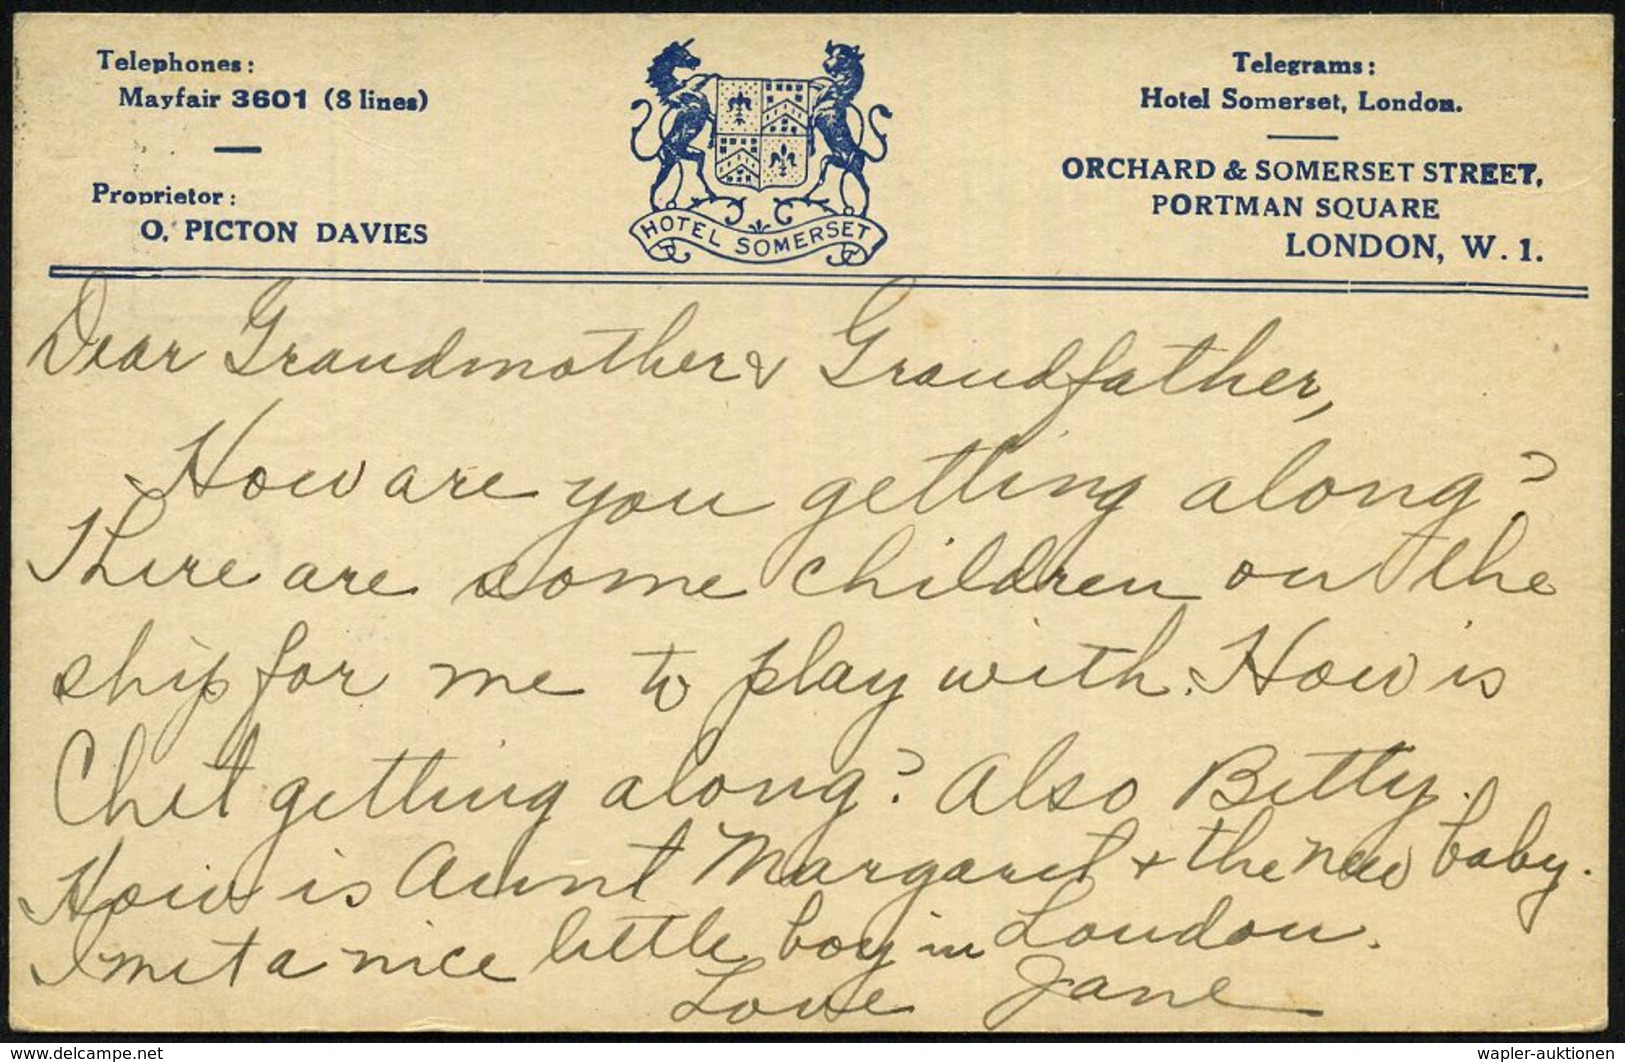 Telephones:
Mayfair 3601 (8 lines)
Proprietor:
O. PICTON DAVIES
HOTEL SOMERSET
Telegrams:
Hotel Somerset, London.
ORCHARD & SOMERSET STREET,
PORTMAN SQUARE
LONDON, W. 1.
Dear Grandmother & Grandfather,
How are you getting along?
There are some children on the
ship for me to play with. How is
Chet getting along? Also Betty.
How is Aunt Margaret + the new baby.
I met a nice little boy in London.
Love Jane
www.delcampe.net
wapler-auktionen